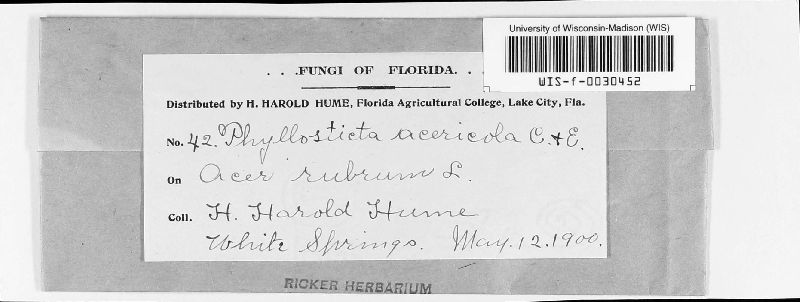 University of Wisconsin-Madison (WIS)
WIS-f-0030452
. . .FUNGI OF FLORIDA. . .
Distributed by H. HAROLD HUME, Florida Agricultural College, Lake City, Fla.
No. 42. Phyllosticta acericola C. & E.
On Acer rubrum L.
Coll. H. Harold Hume
White Springs. May. 12. 1900.
RICKER HERBARIUM